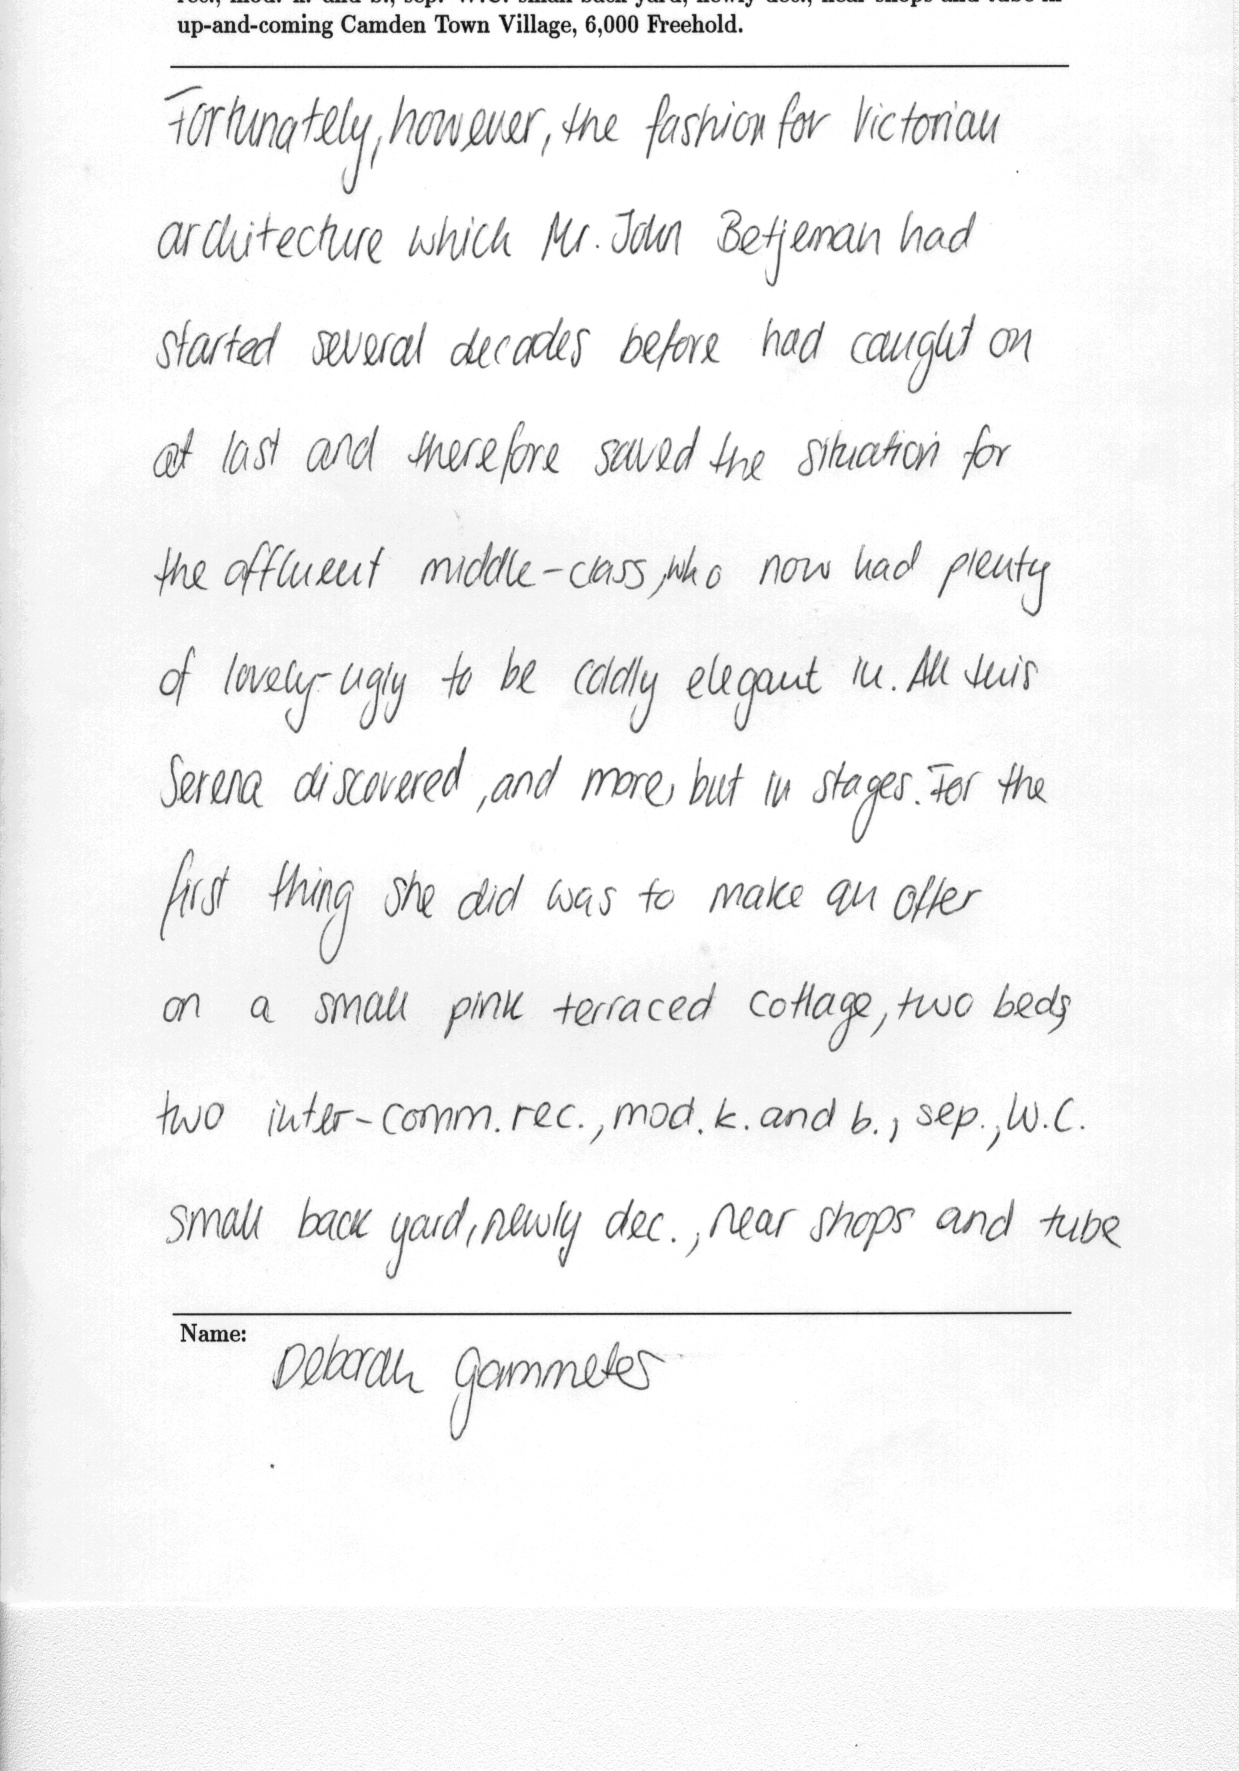 rec., mod. k. and b., sep. W.C. small back yard, newly dec., near shops and tube in
up-and-coming Camden Town Village, 6,000 Freehold.
Fortunately, however, the fashion for Victorian
architecture which Mr. John Betjeman had
started several decades before had caught on
at last and therefore saved the situation for
the affluent middle-class, who now had plenty
of lovely-ugly to be coldly elegant in. All this
Serena discovered, and more, but in stages. For the
first thing she did was to make an offer
on a small pink terraced cottage, two beds,
two inter-comm. rec., mod. k. and b., sep., W.C.
small back yard, newly dec., near shops and tube
Name:
Deborah Gammeter